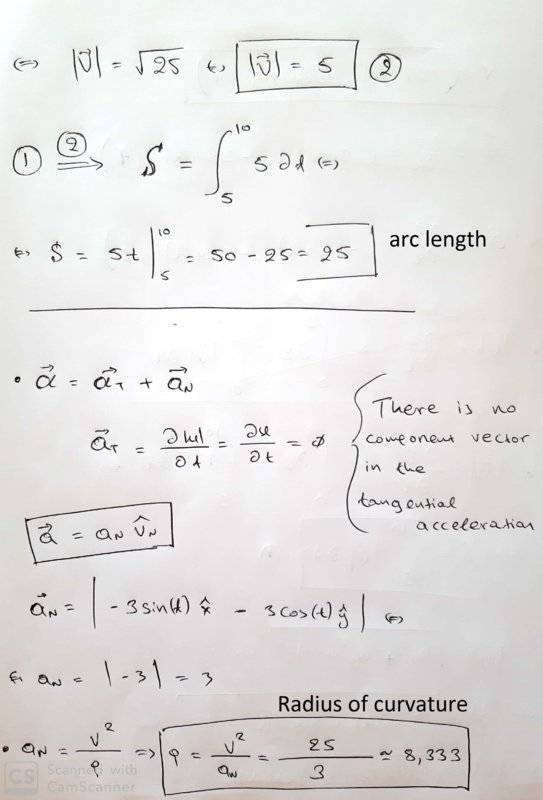 ⇔ |v⃗| = √25 ⇔ |v⃗| = 5 ②
① ②⟹ S = ∫₅¹⁰ 5 ∂t ⇔
⇔ S = 5t |₅¹⁰ = 50 - 25 = 25 arc length
• a⃗ = a⃗T + a⃗N
a⃗T = ∂|v|/∂t = ∂v/∂t = ∅
There is no
component vector
in the
tangential
acceleration
a⃗ = aN ûN
a⃗N = | -3 sin(t) x̂ - 3 cos(t) ŷ | ⇔
⇔ aN = |-3| = 3
Radius of curvature
• aN = v²/ρ ⇒ ρ = v²/aN = 25/3 ≃ 8,333
CS Scanned with
CamScanner